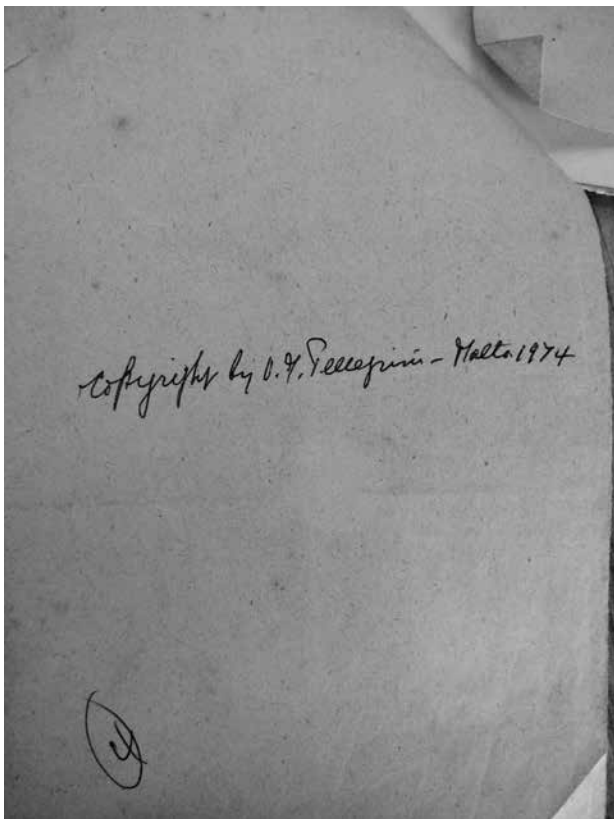 Copyright by V. F. Pellegrini – Malta 1974